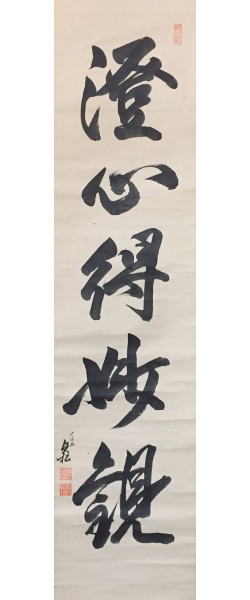 澄心得妙観